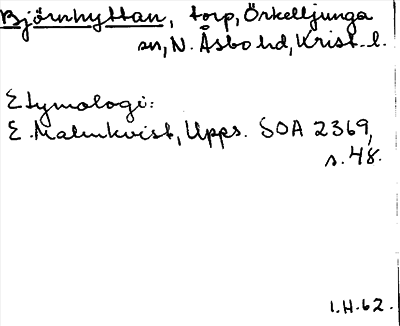 Björnhyttan, torp, Örkelljunga
sn, N. Åsbo hd, Krist. l.
Etymologi:
E. Malmkvist, Upps. SOA 2369,
s. 48.
I.H. 62.